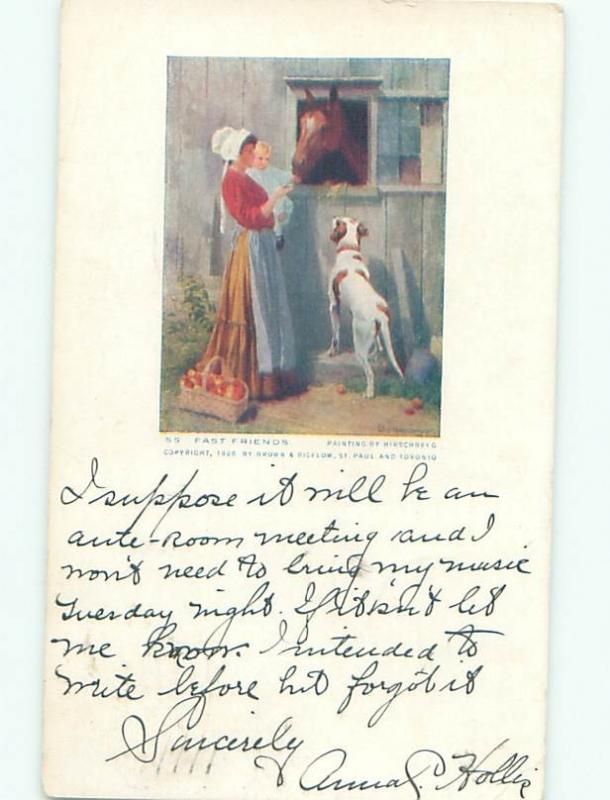 55 FAST FRIENDS. PAINTING BY HIRSCHBERG
COPYRIGHT, 1906 BY BROWN & BIGELOW, ST. PAUL AND TORONTO
I suppose it will be an
ante-room meeting and I
won't need to bring my music
Tuesday night. If it isn't let
me know. I intended to
write before but forgot it
Sincerely
Anna C. Hollis